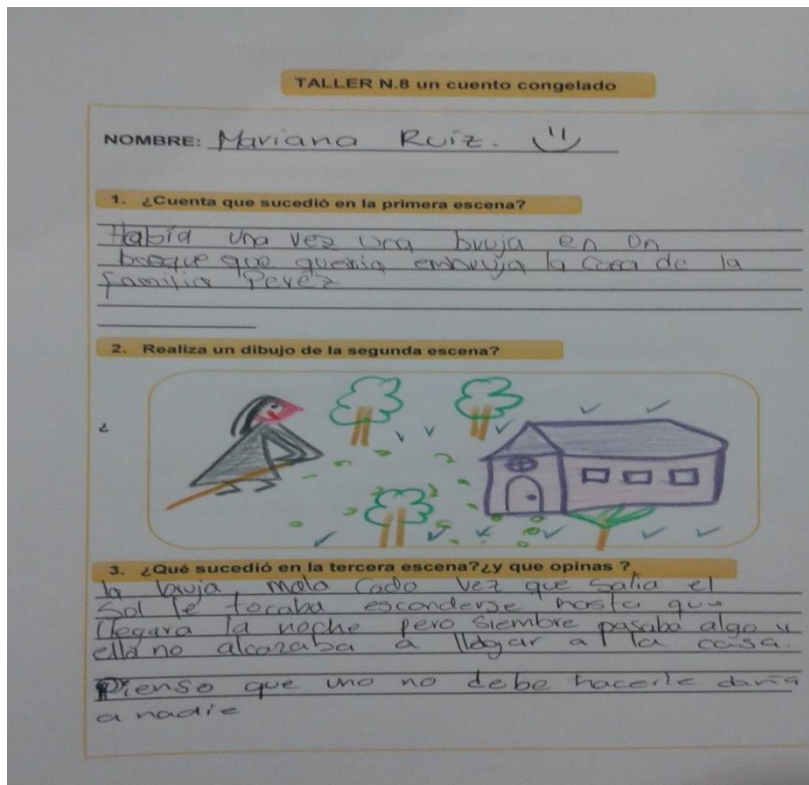 TALLER N.8 un cuento congelado
NOMBRE: Mariana Ruiz.
1. ¿Cuenta que sucedió en la primera escena?
Había una vez una bruja en on
bosque que queria embruja la casa de la
familia Perez
2. Realiza un dibujo de la segunda escena?
¿
3. ¿Qué sucedió en la tercera escena?¿y que opinas ?
la bruja mala cada vez que salia el
sol le tocaba esconderse hasta que
llegara la noche pero siembre pasaba algo y
ella no alcazaba a llegar a la casa.
Pienso que uno no debe hacerle
a nadie